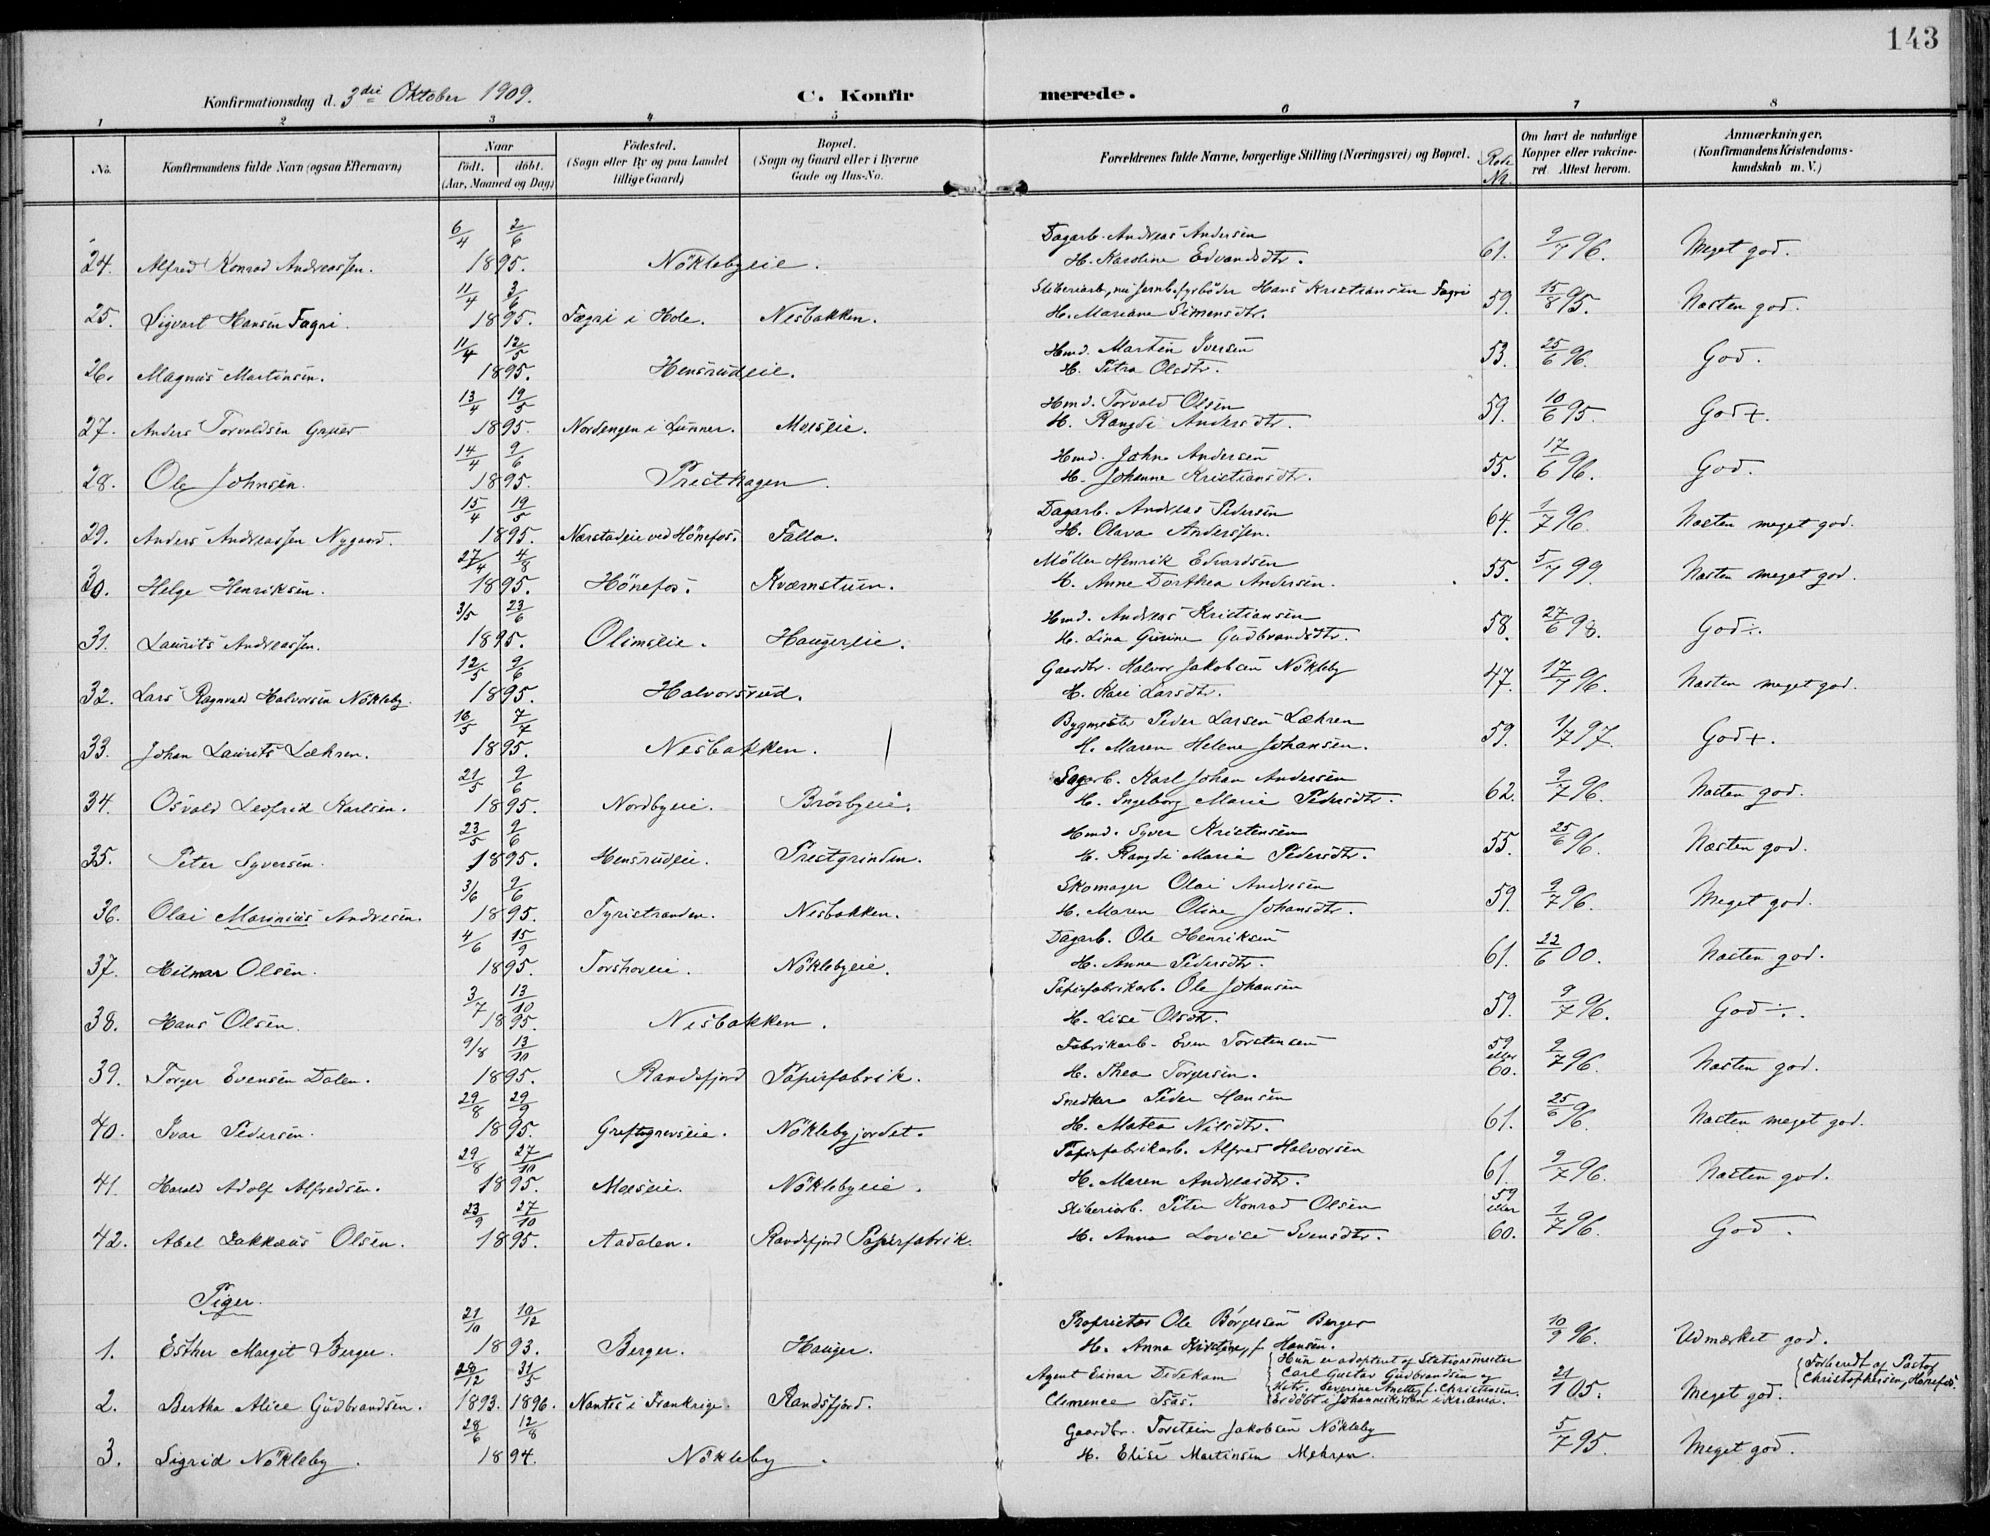 143
Konfirmationsdag d. 3die Oktober 1909.
C. Konfirmerede.
1 2 3 4 5 6 7 8
No. Konfirmandens fulde Navn (ogsaa Efternavn) Naar født. døbt. (Aar, Maaned og Dag) Fødested. (Sogn eller By og paa Landet tillige Gaard) Bopæl. (Sogn og Gaard eller i Byerne Gade og Hus-No. Forældrenes fulde Navne, borgerlige Stilling (Næringsvei) og Bopæl. Rode Nr. Om havt de naturlige Kopper eller vakcineret Attest herom. Anmærkninger. (Konfirmandens Kristendomskundskab m. V.)
24. Alfred Konrad Andreassen. 6/4 2/6 1895. Nöklebyeie. Dagarb. Andreas Andersen H. Karoline Edvardsdtr. 61. 9/7 96. Meget god.
25. Sigvart Hansen Fagri. 11/4 3/6 1895. Fægri i Hole. Nesbakken. Sliberiarb., nu Jernb.fyrböder Hans Kristiansen Fagri H. Mariane Simensdtr. 59. 15/8 95. Næsten god.
26. Magnus Martinsen. 11/4 12/5 1895. Hensrudeie. Hmd. Martin Iversen H. Petra Olsdtr. 53. 25/6 96. God.
27. Anders Torvaldsen 13/4 19/5 1895. Nordengen i Lunner. Moeseie. Hmd. Torvald Olsen H. Rangdi Andersdtr. 59. 10/6 95. God+.
28. Ole Johnsen. 14/4 9/6 1895. Presthagen. Hmd. John Andersen H. Johanne Kristiansdtr. 55. 17/6 96. God.
29. Anders Andreassen Nygaard. 15/4 19/5 1895. Nærstadeie ved Hönefos. Falla. Dagarb. Andreas Pedersen H. Olava Anderssen. 64. 1/7 96. Næsten meget god.
30. Helge Henriksen. 27/4 4/8 1895. Hönefos. Kværnstuen. Möller Henrik Edvardsen H. Anne Dorthea Andersen. 55. 5/7 99. Næsten meget god.
31. Laurits Andreassen. 3/5 23/6 1895. Olimseie. Haugereie. Hmd. Andreas Kristiansen H. Lina Gurine Gudbrandsdtr. 58. 27/6 98. God÷.
32. Lars Ragnvald Halvorsen Nökleby. 12/5 9/6 1895. Halvorsrud. Gaardbr. Halvor Jakobsen Nökleby H. Kari Larsdtr. 47. 17/7 96. Næsten meget god.
33. Johan Laurits Læhren. 16/5 7/7 1895. Nesbakken. Bygmester Peder Larsen Læhren H. Maren Helene Johansen. 59. 1/7 97. God+.
34. Osvald Leofrid Karlsen. 21/5 9/6 1895. Nordbyeie. Brörbyeie. Dagarb. Karl Johan Andersen H. Ingeborg Marie Pedersdtr. 62. 9/7 96. Næsten god.
35. Peter Syversen. 23/5 9/6 1895. Hensrudeie. Prestgrinden. Hmd. Syver Kristensen H. Rangdi Marie Pedersdtr. 55. 25/6 96. Næsten god.
36. Olai Marinius Andresen. 3/6 9/6 1895. Tyristranden. Nesbakken. Skomager Olai Andresen H. Maren Oline Johansdtr. 59. 9/7 96. Meget god.
37. Hilmar Olsen. 4/6 15/9 1895. Torshoveie. Nöklebyeie. Dagarb. Ole Henriksen H. Anne Pedersdtr. 61. 22/6 00. Næsten god.
38. Hans Olsen. 3/7 13/10 1895. Nesbakken. Papirfabrikarb. Ole Johansen H. Lise Olsdtr. 59. 9/7 96. God÷.
39. Torger Evensen Dalen. 9/8 13/10 1895. Randsfjord Papirfabrik. Fabrikarb. Even Torstensen H. Thea Torgersen. 59 eller 60. 9/7 96. Næsten god.
40. Ivar Pedersen. 29/8 29/9 1895. Greftegreveie. Nöklebyjordet. Snedker Peder Hansen H. Matea Nilsdtr. 61. 25/6 96. Næsten meget god.
41. Harald Adolf Alfredsen. 29/8 27/10 1895. Moeseie. Nöklebyeie. Papirfabrikarb. Alfred Halvorsen H. Maren Andreasdtr. 61. 9/7 96. Næsten god.
42. Abel Zakkæus Olsen. 23/9 27/10 1895. Aadalen. Randsfjord Papirfabrik. Sliberiarb. Peter Konrad Olsen H. Anna Lovise Svensdtr. 59 eller 60. 1/7 96. God.
Piger.
1. Esther Margit Berger. 21/10 10/12 1893. Berger. Hauger. Proprietær Ole Börgersen Berger H. Anna Kirstine, f. Hansen. 10/9 96. Udmærket god.
2. Bertha Alice Gudbrandsen. 28/12 1893. 31/5 1896. Nantes i Frankrige. Randsfjord. Agent Einar Dedekam Clemence Isas. Hun er adopteret af Stationsmester Carl Gustav Gudbrandsen og Hstr. Severine Anette, f. Christensen. Er döbt i Johanneskirken i Kr.ania. 21/1 05. Meget god. Forberedt af Pastor Christophersen, Hönefos.
3. Sigrid Nökleby. 28/6 12/8 1894. Nökleby. Gaardbr. Torstein Jakobsen Nökleby H. Elise Martinsen Mehren. 5/7 95. Meget god.